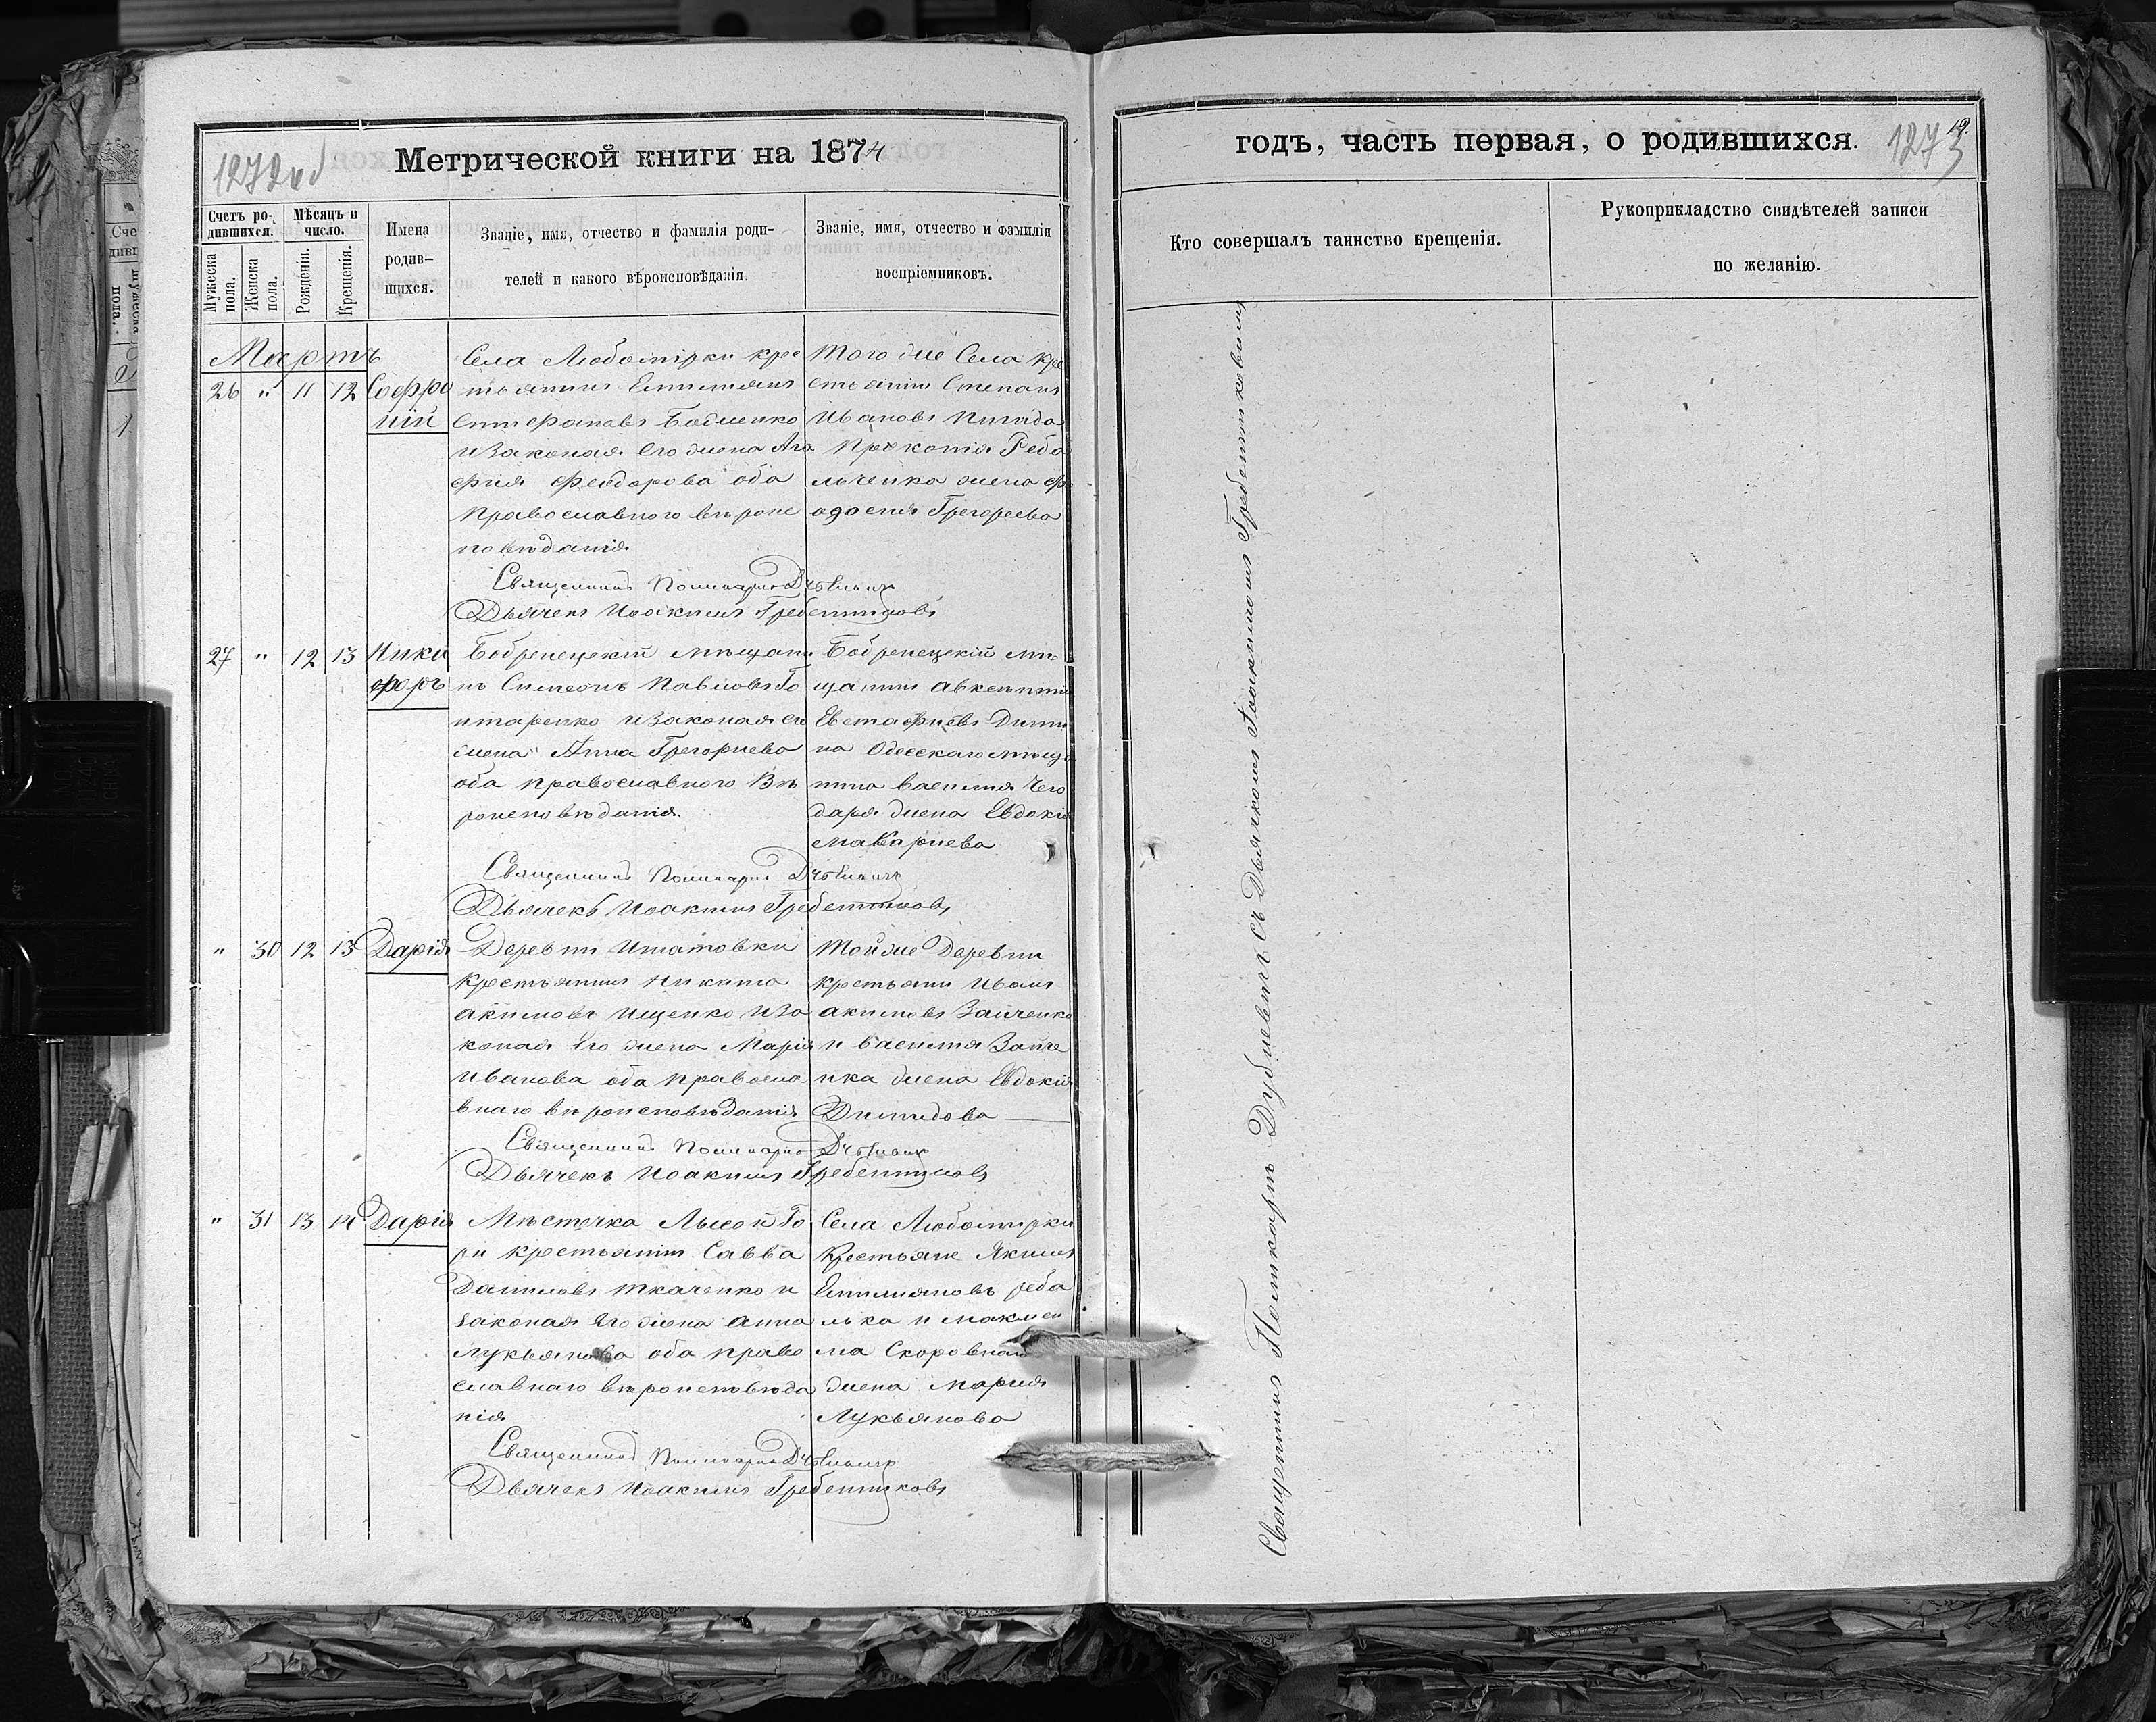 1272 об
Метрической книги на 1874
Счетъ ро-
дившихся.
Мѣсяцъ и
число.
Мужеска
пола.
Женска
пола.
Рожденія.
Крещенія.
Имена
родив-
шихся.
Званіе, имя, отчество и фамилія роди-
телей и какого вѣроисповѣданія.
Званіе, имя, отчество и фамилія
воспріемниковъ.
Мартъ
26 " 11 12 Софро
ній
Села Любомірки кре
стьянинъ Емиліанъ
Стефановъ
и законая его жена Ага
фия Феодорова оба
православного вѣроис
повѣданія.
Священникъ Поликарпъ
Дьячекъ Иоакимъ Гребенниковъ
Того же Села кре
стьянин Степанъ
Ивановъ
жена Фе
одосия Грегореева
27 " 12 13 Ники
форъ
Бобренецкій мѣщани
нъ Симеонъ Павловъ Го
нтаренко и законая его
жена Анна Грегориева
оба православного Вѣ
роисповѣданія.
Священникъ Поликарпъ
Дьячекъ Иоакимъ Гребенниковъ
Бобренецкій мѣ
щанинъ Авкентий
Евстафиевъ
на Одесского мѣща
нина василия Чего
даря жена Евдокия
макариева
" 30 12 13 Дарія
Деревни Игнатовки
крестьянинъ Никита
акимовъ Ищенко и за
коная его жена Марія
Иванова оба правосла
внаго вѣроисповѣданія
Священникъ Поликарпъ
Дьячекъ Иоакимъ Гребенниковъ
Той же Деревни
крестьяни Иванъ
акимовъ Зайченко
и василия Зайче
нка жена Евдокия
Димидова
" 31 13 14 Дарія
Мѣстечка Лысой Го
ри крестьянин Савва
Даниловъ ткаченко и
законая его жена анна
лукьянова оба право
славнаго вѣроисповѣда
нія
Священникъ Поликарпъ
Дьячекъ Иоакимъ Гребенниковъ
Села Любомирки
крестьяне Якимъ
Емилияновъ реба
лька и максы
ма
жена мария
Лукьянова
годъ, часть первая, о родившихся.
1273
12.
Кто совершалъ таинство крещенія.
Рукоприкладство свидѣтелей записи
по желанію.
Священникъ Поликарпъ Дубневичъ съ Дьячкомъ Іоакимомъ Гребенниковымъ